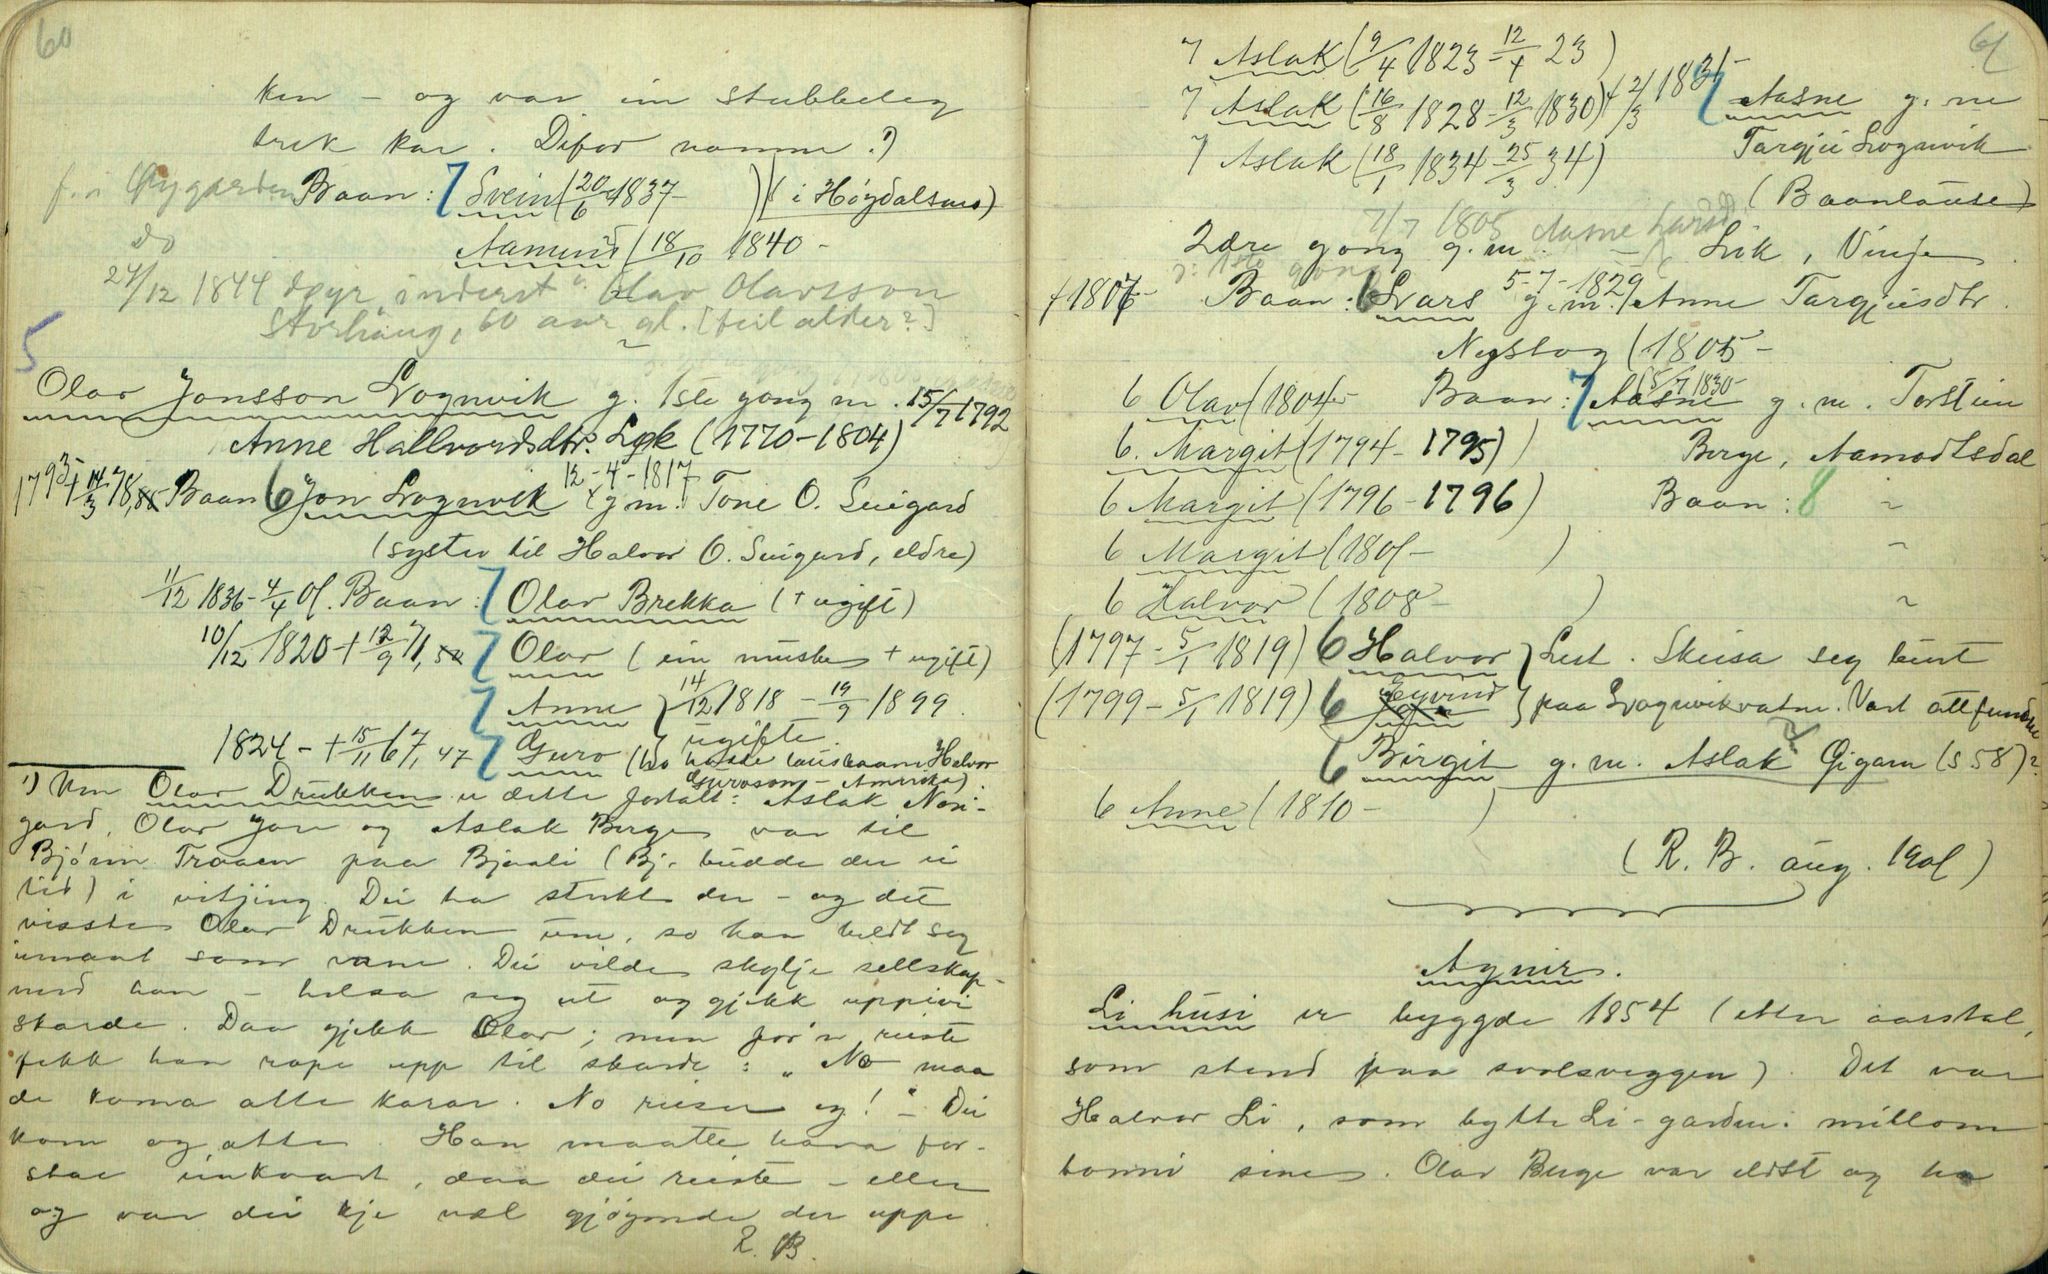 60
ken - og var ein stubbeleg
trek kar. Difor namne.¹)
f. i Øygarden Baan: 7 Svein (20/6 1837- ) (i Høydalsmo)
do Aamund (18/10 1840-
27/12 1844 døyr inderst Olav Olavsson
Storhaug, 60 aar gl. [feil alder?]
5
Olav Jonsson Vognvik g. 1ste gong m. 15/7 1792
Anne Hallvordsdtr. Lik (1770-1804)
12-4-1817
1793 + 14/3 78, 85 Baan 6 Jon Vognvik g m. Tone O. Suigard
(syster til Halvor O. Suigard, eldre)
11/12 1836 - 4/4 01. Baan: 7 Olav Brekka (+ ugift)
10/12 1820 + 12/9 71, 50 7 Olav (ein + ugift)
7 Anne } 14/12 1818 - 19/9 1899
ugifte
1824 - + 15/11 67, 47 7 Guro (ho hadde lausbaane Halvor
Guroson - Amerika)
¹) Um Olav Drukken er dette fortalt: Aslak Nori-
gard, Olav Jore og Aslak Berge var til
Bjønn Traaen paa Bjaali (Bj. budde der ei
tid) i vitjing. Dei ha stukt der - og det
visste Olav Drukken um, so han heldt seg
imaat som vane. Dei vilde skylje sellskap-
med han - helsa seg ut og gjekk uppivi
skarde. Daa gjekk Olav; men for'n reiste
fekk han rope upp til skarde: "No maa
de koma atte karar. No reiser eg!" - Dei
kom og atte. Han maatte hava for-
stae einkvart, daa dei reiste - eller
og var dei kje væl gjøymde der uppe.
R. B.
61
7 Aslak (9/4 1823 - 12/4 23)
7 Aslak (16/8 1828 - 12/3 1830) + 2/3 1831-
7 Aasne g. m
7 Aslak (18/1 1834 25/3 34)
Targjei Lognvik
(Baanlause)
7/7 1805 Aasne
2dre gong g. m. - Lik, Vinje
ɔ: 1ste gong
5-7-1829
+ 1807- Baan: 6 Lvars g. m. Anne Targjeisdtr.
Nystog (1805-
6 Olav (1804- Baan: 7 Aasne (5/7 1830- g. m. Torstein
6. Margit (1794 - 1795) Berge, Aamodtsdal
6 Margit (1796 - 1796) Baan: 8 "
6 Margit (1801- ) "
6 Halvor (1808- ) "
(1797 - 5/1 1819) 6 Halvor } Lest. Skeisa seg burt
(1799 - 5/1 1819) 6 Eyvind } paa Vognvikvatne. Vart attfundne
6 Birgit g. m. Aslak Gigarn (s 58)?
6 Anne (1810- )
(R. B. aug. 1901)
Agnir.
Li husi er byggde 1854 (etter aarstal,
som stend paa svolsveggen). Det var
Halvor Li, som bytte Li-garden: millom
bonni sine. Olav Berge var eldst og ha